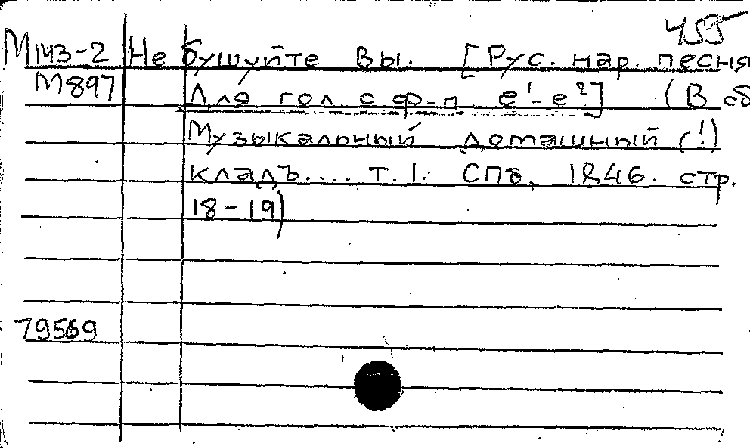 455
М143-2 Не бушуйте вы. [Рус. нар. песня
М897 Для гол. с ф-п. e¹-e²] (В сб
Музыкальный домашный (!)
кладъ.... т. 1. СПб, 1846. стр.
18-19)
79569